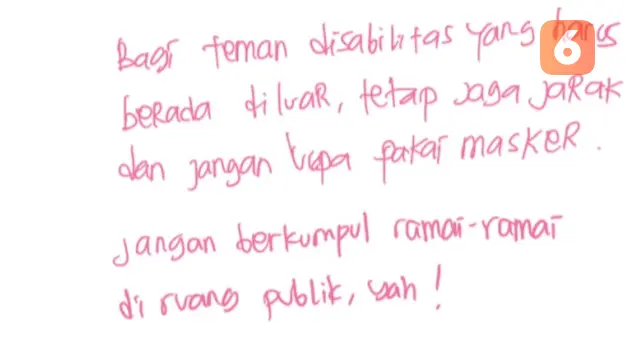 Bagi teman disabilitas yang harus
berada diluaR, tetap jaga jaRak
dan jangan lupa pakai masKeR.
jangan berkumpul ramai-ramai
di ruang publik, yah!
6